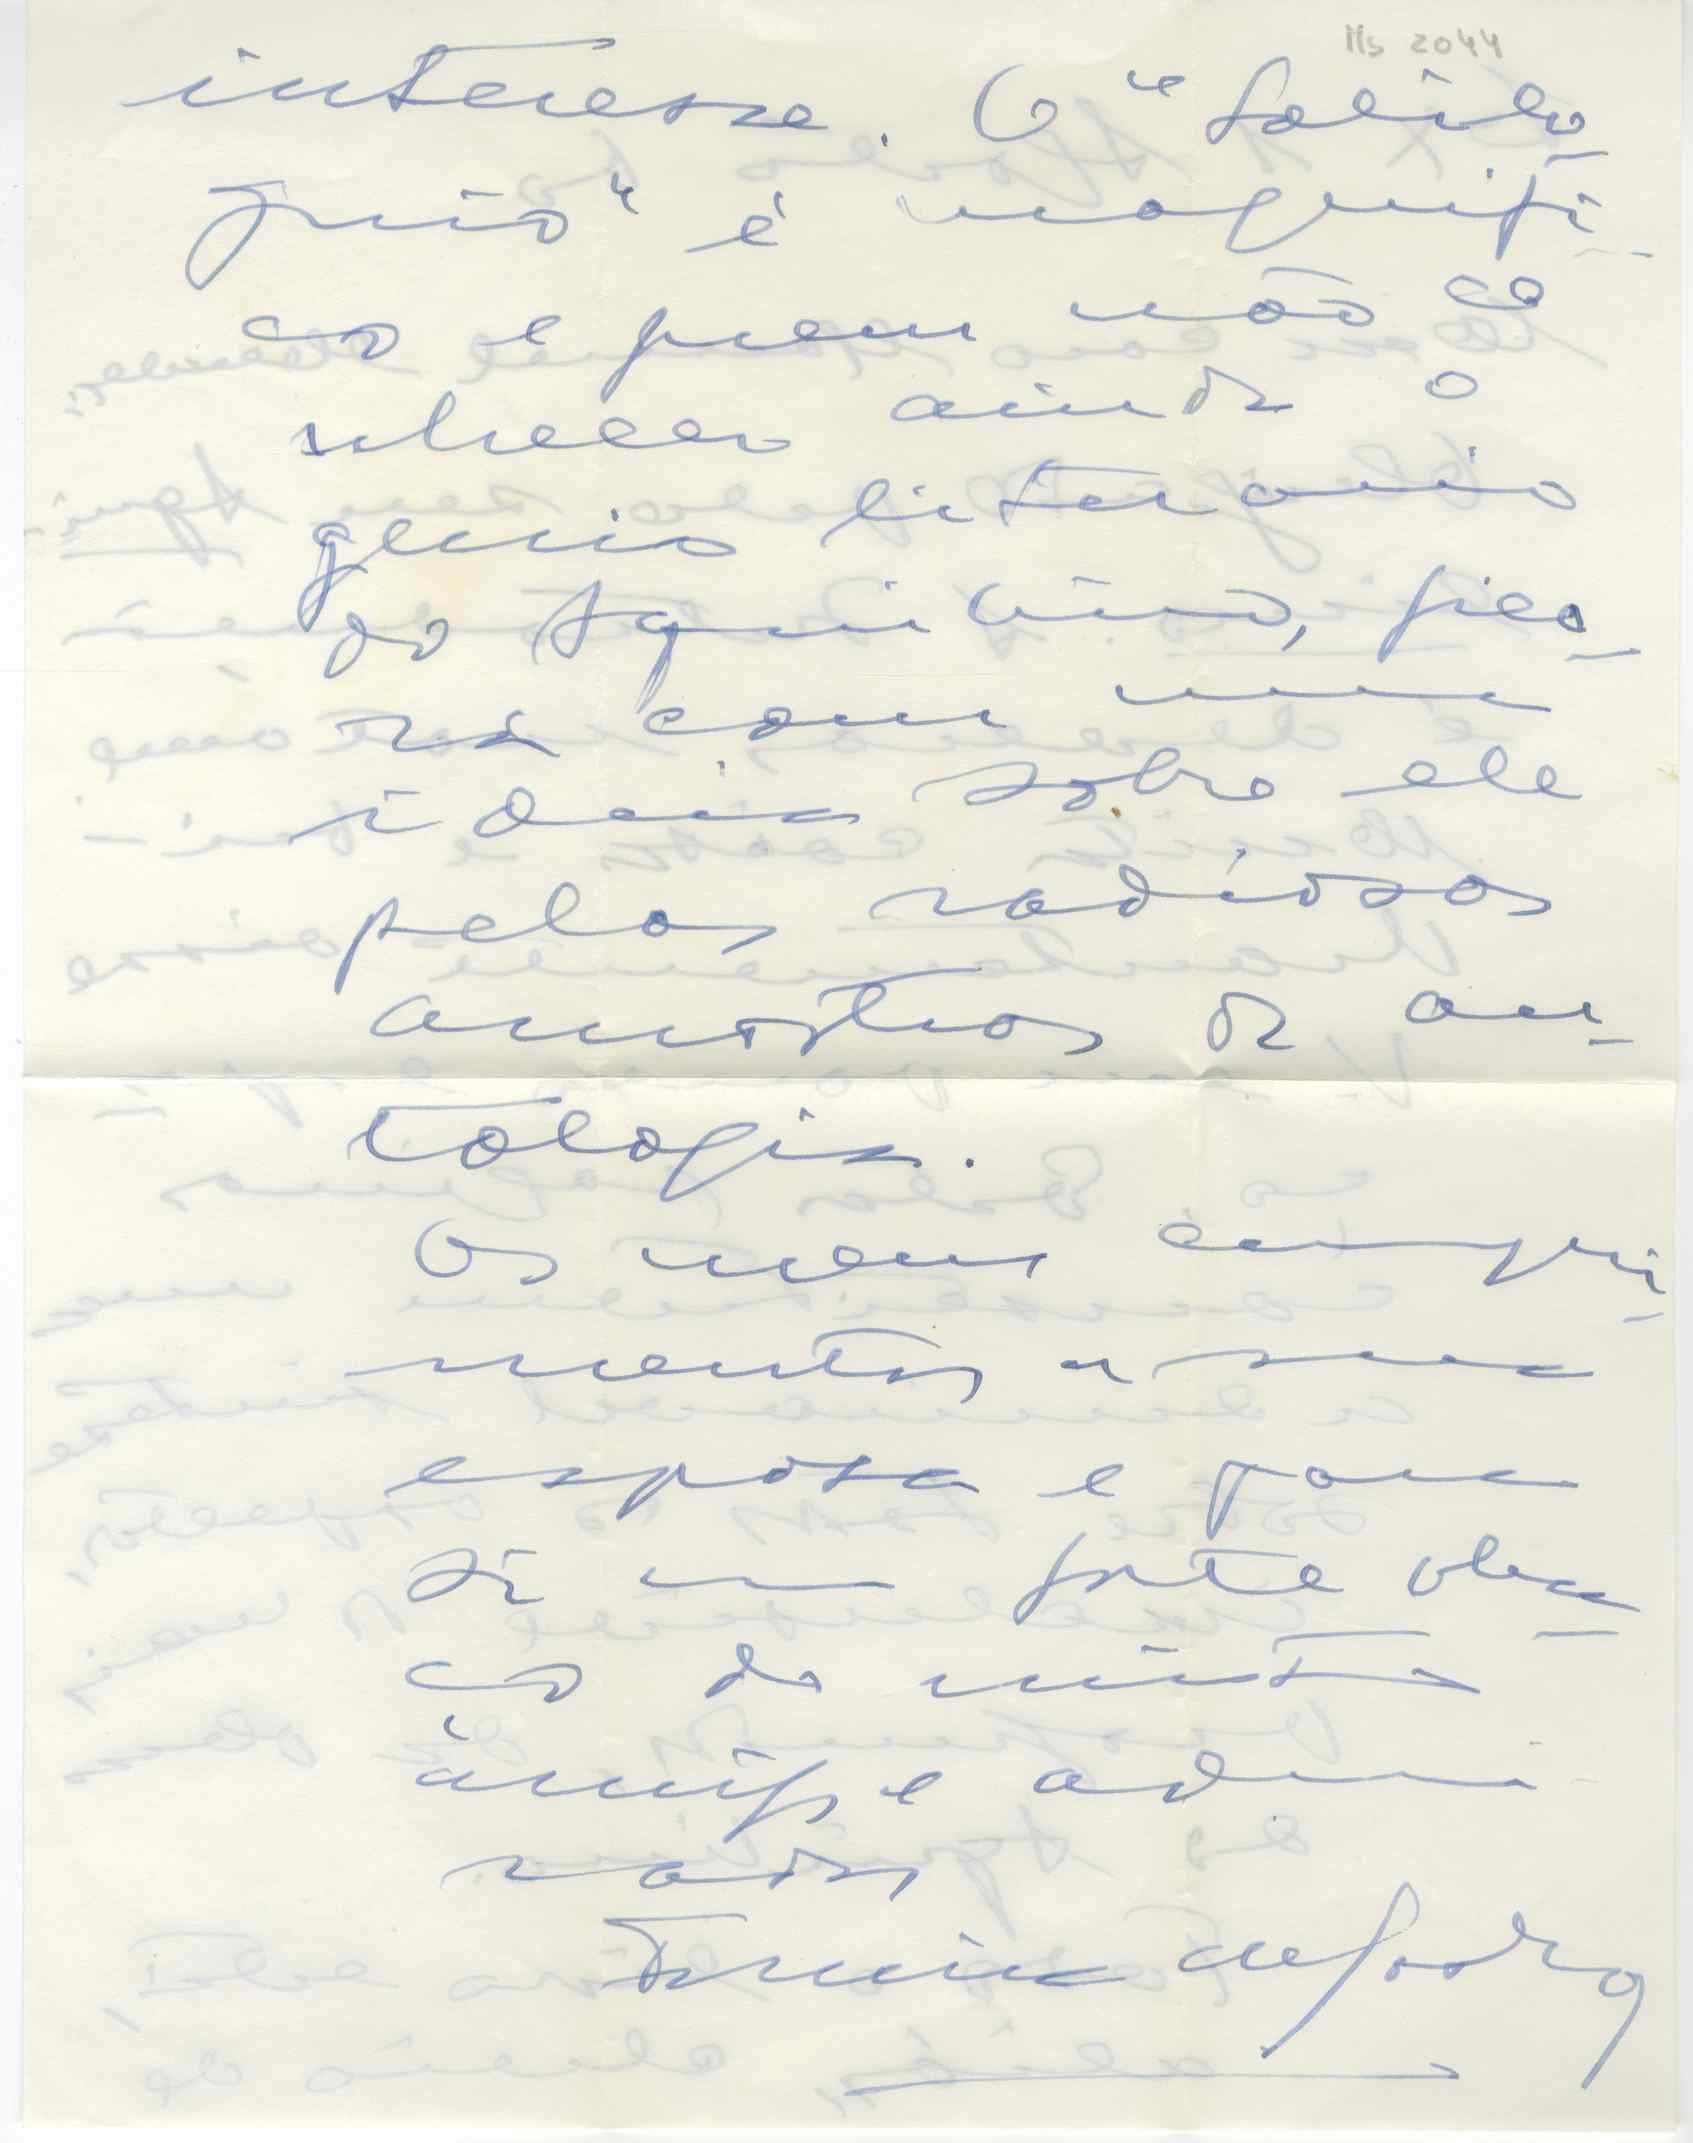 Ms 2044
interesse. O "Soliló_
quio" é magnífi_
co e quem não co
nheceu ainda o
genio literario
do Aquilino, fica_
rá com uma
ideia sobre ele
pelas radiosas
amostras da an_
tologia.
Os meus cumpri_
mentos a sua
esposa e para
si um forte abra_
ço do muito
amigo e admi
rador
Ferreira de Castro